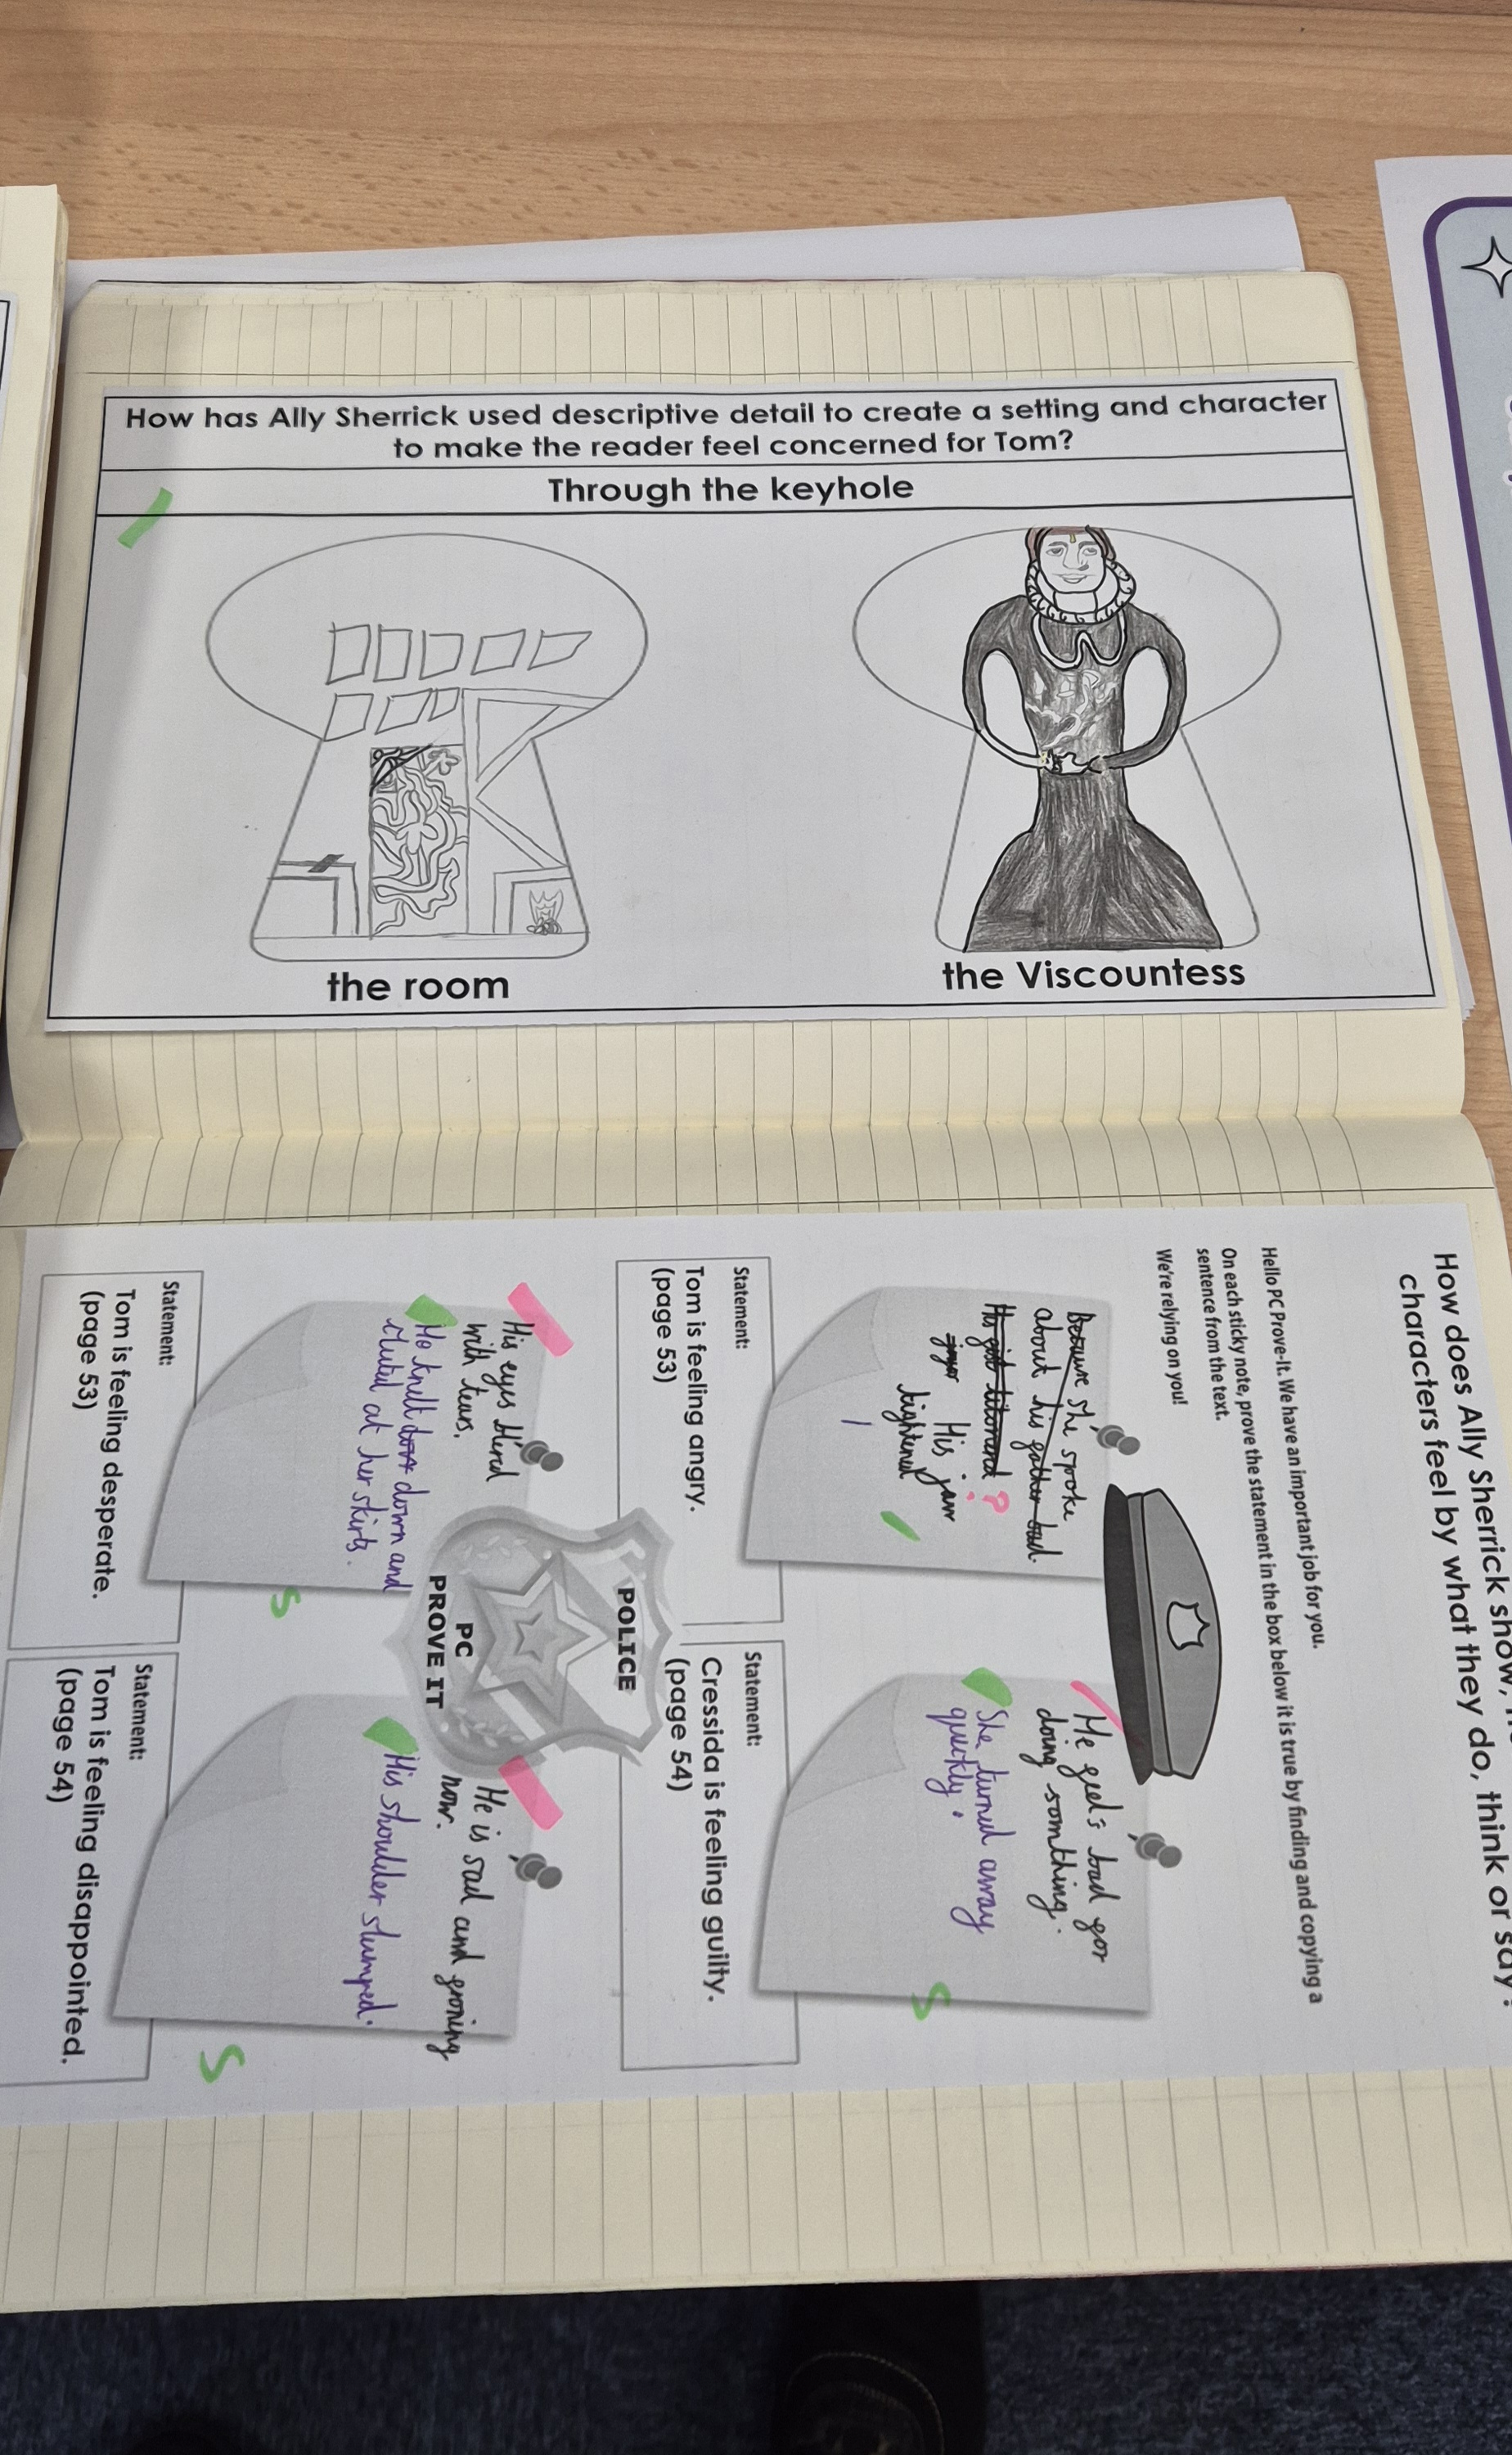 How has Ally Sherrick used descriptive detail to create a setting and character
to make the reader feel concerned for Tom?
Through the keyhole
the room
the Viscountess
How does Ally Sherrick show,
characters feel by what they do, think or say?
Hello PC Prove-It. We have an important job for you.
On each sticky note, prove the statement in the box below it is true by finding and copying a
sentence from the text.
We're relying on you!
Because she spoke
about his father bad.
?
His jaw
tightened
Statement:
Tom is feeling angry.
(page 53)
He feels bad for
doing somthing.
She turned away
quickly.
S
Statement:
Cressida is feeling guilty.
(page 54)
POLICE
PC
PROVE IT
His eyes blered
with tears.
He knelt down and
cluted at her skirts.
S
Statement:
Tom is feeling desperate.
(page 53)
He is sad and groning
now.
His shoulder slumped.
S
Statement:
Tom is feeling disappointed.
(page 54)